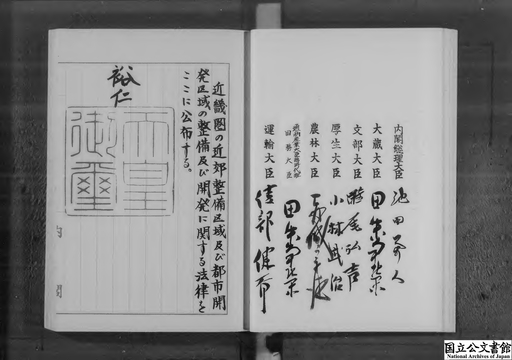 内閣総理大臣 池田勇人
大蔵大臣 田中角栄
文部大臣 灘尾弘吉
厚生大臣 小林武治
農林大臣
通商産業大臣臨時代理
国務大臣 田中角栄
運輸大臣 綾部健太郎
近畿圏の近郊整備区域及び都市開
発区域の整備及び開発に関する法律を
ここに公布する。
裕仁
天皇
御璽
国立公文書館
National Archives of Japan